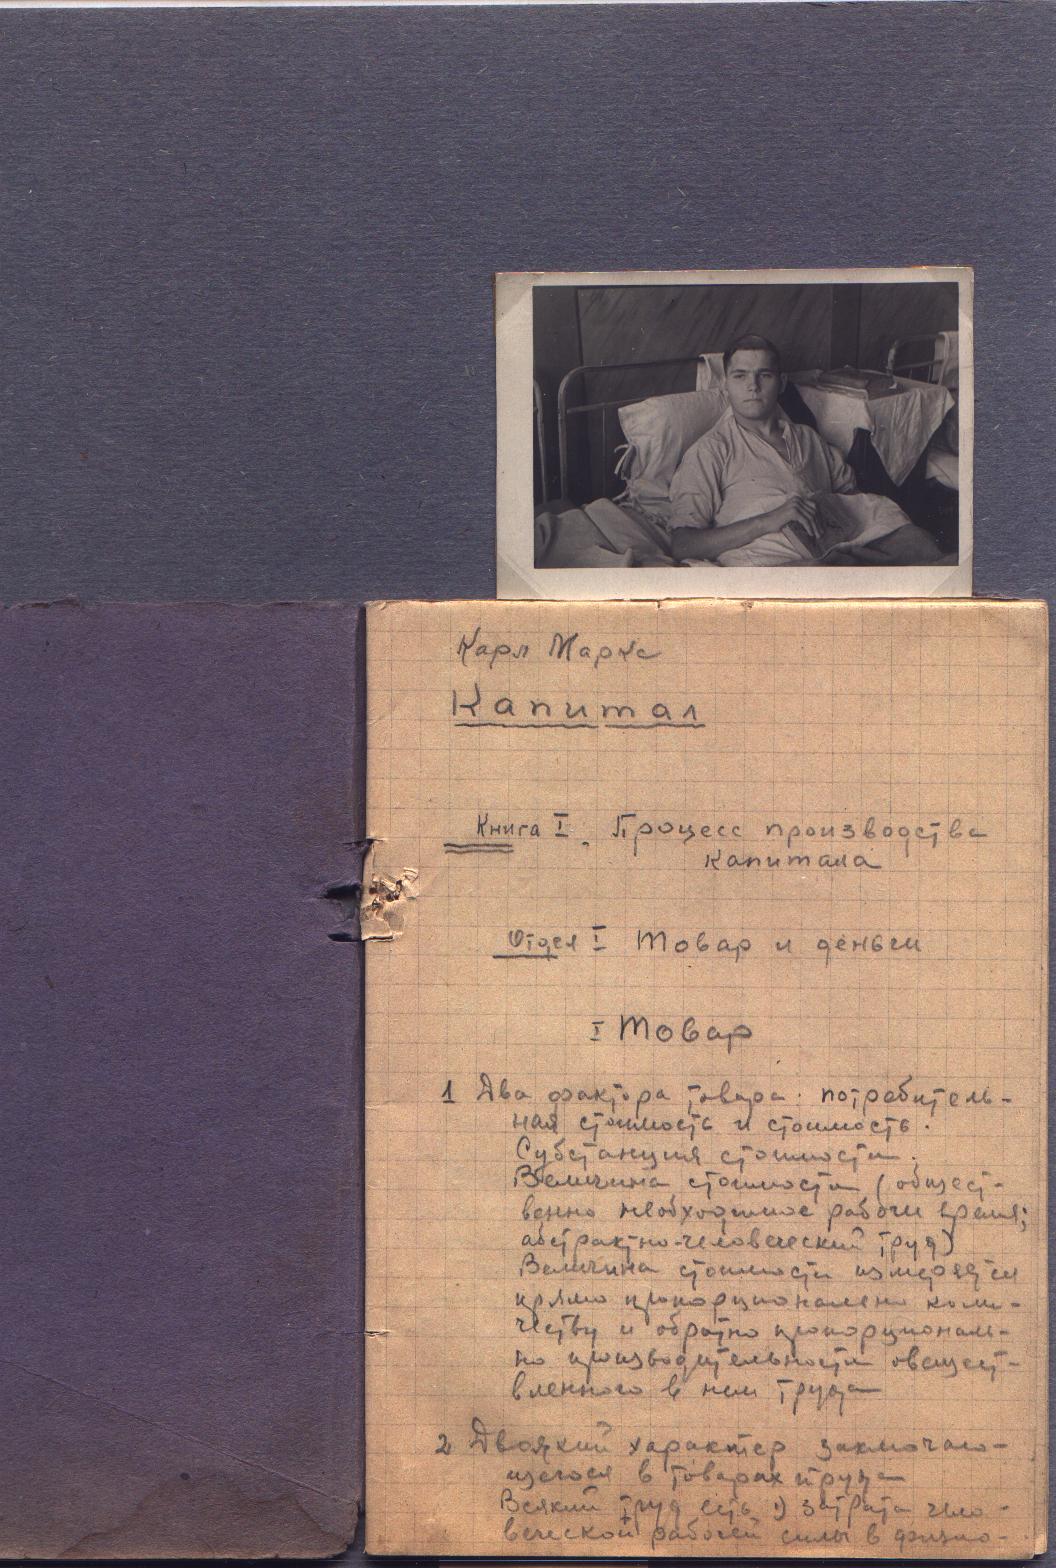 Карл Маркс
Капитал
Книга I. Процесс производства
капитала
Отдел I Товар и деньги
I Товар
1 Два фактора товара: потребитель-
ная стоимость и стоимость.
Субстанция стоимости.
Величина стоимости (общест-
венно необходимое рабочи время;
абстрактно-человеческий труд)
Величина стоимости измеряется
прямо пропорционалено коли-
честву и обратно пропорциональ-
но производительности овещест-
вленного в нем труда
2 Двоякий характер заключаю-
щегося в товарах труда
Всякий труд есть 1) затрата чело-
веческой рабочей силы в физио-